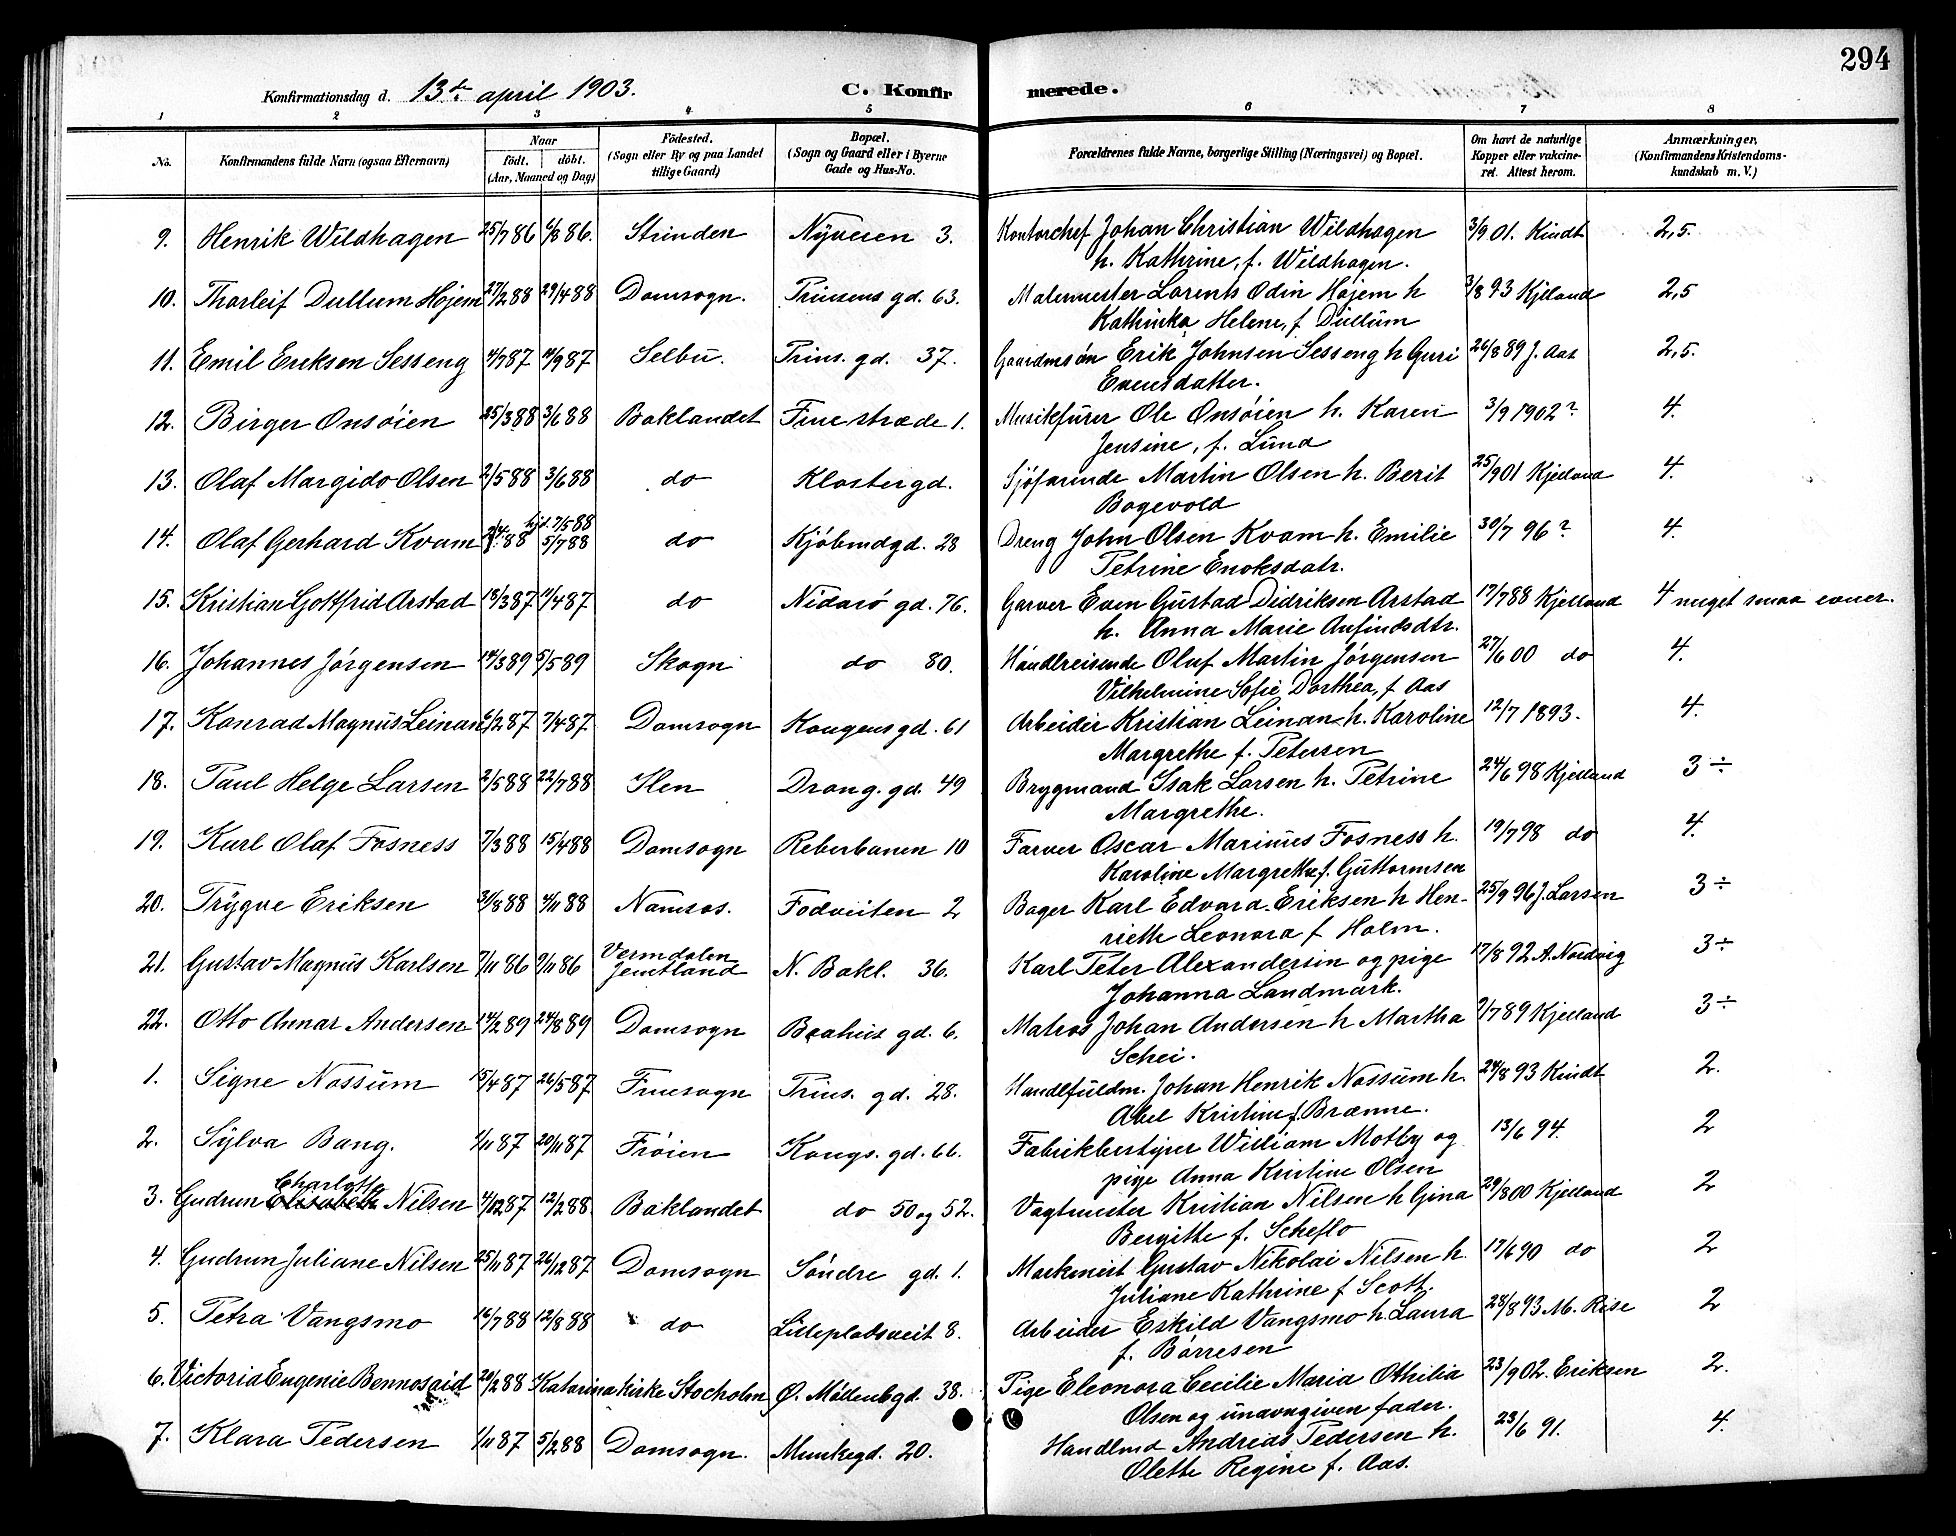 294
Konfirmationsdag d. 13de april 1903. C. Konfirmerede.
1 2 3 4 5 6 7 8
No. Konfirmandens fulde Navn (ogsaa Efternavn) Naar født. døbt. (Aar, Maaned og Dag) Fødested. (Sogn eller By og paa Landet tillige Gaard) Bopæl. (Sogn og Gaard eller i Byerne Gade og Hus-No. Forældrenes fulde Navne, borgerlige Stilling (Næringsvei) og Bopæl. Om havt de naturlige Kopper eller vakcineret. Attest herom. Anmærkninger, (Konfirmandens Kristendomskundskab m. V.)
9. Henrik Wildhagen 25/7 86 6/8 86. Strinden Nyveien 3. Kontorchef Johan Christian Wildhagen 3/9 01. Kindt 2,5.
h. Kathrine, f. Wildhagen.
10. Thorleif Dullum Hojem 27/2 88 29/4 88 Domsogn. Prinsens gd. 63. Malermester Lorents Odin Højem h 3/8 93 Kjelland 2,5
Kathinka Helene, f Dullum
11. Emil Eriksen Sesseng 4/7 87 11/9 87 Selbu. Prins. gd. 37. Gaardmsøn Erik Johnsen Sesseng h Guri 26/8 89 J. Aas 2,5.
Evensdatter.
12. Birger Onsøien 25/3 88 3/6 88 Baklandet Fruestræde 1. Musikfürer Ole Onsøien h. Karen 3/9 1902? 4.
Jensine, f. Lund
13. Olaf Margido Olsen 2/5 88 3/6 88 do Klostergd. Sjøfarende Martin Olsen h. Berit 25/9 01 Kjelland 4.
Bogevold
14. Olaf Gerhard Kvam 88 hjd. 7/5 88 5/7 88 do Kjøbmdgd. 28 Dreng John Olsen Kvam h. Emilie 30/7 96? 4.
Petrine Enoksdatr.
15. Kristian Gottfrid Arstad 18/3 87 11/4 87 do Nidarø gd. 76. Garver Even Gustad Didriksen Arstad 17/7 88 Kjelland 4 meget smaa evner.
h. Anna Marie Anfindsdtr.
16. Johannes Jørgensen 14/3 89 5/5 89 Skogn do 80. Handlreisende Oluf Martin Jørgensen 27/6 00 do 4.
Vilhelmine Sofie Dorthea, f Aas
17. Konrad Magnus Leinan 6/2 87 7/4 87 Domsogn Kongensgd. 61 Arbeider Kristian Leinan h. Karoline 12/7 1893. 4.
Margrethe f. Petersen
18. Paul Helge Larsen 2/5 88 22/7 88 Ilen Drong. gd. 49 Brygmand Isak Larsen h. Petrine 24/6 98 Kjelland 3÷
Margrethe.
19. Karl Olaf Fosness 7/3 88 15/4 88 Domsogn Reberbanen 10 Farver Oscar Marinus Fosness h. 19/7 98 do 4.
Karoline Margrethe f. Guttormsen
20. Trygve Eriksen 31/8 88 4/11 88 Namsos. Fodveiten 2 Bager Karl Edvard Eriksen h Hen- 25/9 96 J. Larsen 3÷
riette Leonora f Holm.
21. Gustav Magnus Karlsen 7/11 86 9/11 86 Vermdalen Jemtland N. Bakl. 36. Karl Peter Alexandersen og pige 17/8 92 A. Nordvig 3÷
Johanna Landmark.
22. Otto Annar Andersen 14/2 89 24/8 89 Domsogn Baahus gd. 6. Matros Johan Andersen h Martha 9/7 89 Kjelland 3÷
Schei.
1. Signe Nossum 15/4 87 26/5 87 Fruesogn Prins. gd. 28. Handlfuldm. Johan Henrik Nossum h. 24/8 93 Kindt 2.
Abel Kristine f. Brænne.
2. Sylva Bang. 1/11 87 20/11 87 Frøien Kongs. gd. 66. Fabrikbestyrer William Motby og 13/6 94. 2
pige Anna Kristine Olsen
3. Gudrun Charlotte Nilsen 4/12 87 12/2 88. Baklandet do 50 og 52. Vagtmester Kristian Nilsen h Gina 29/8 00 Kjelland 2
Bergithe f. Scheflo
4. Gudrun Juliane Nilsen 25/11 87 26/12 87 Domsogn Søndre gd. 1. Maskinist Gustav Nikolai Nilsen h. 17/6 90 do 2
Juliane Kathrine f Scott.
5. Petra Vangsmo 16/7 88 12/8 88 do Lilleplobsveit 8. Arbeider Eskild Vangsmo h. Laura 28/8 93 M. Rise 2
f. Børresen
6. Victoria Eugenie Bennosaid 20/2 88 Katarina kirke Stocholm Ø. Møllenbgd. 38. Pige Eleonora Cecilie Maria Othilia 23/9 02. Eriksen 2.
Olsen og unavngiven fader.
7. Klara Pedersen 1/11 87 5/2 88 Domsogn. Munkegd. 20. Handlmd Andreas Pedersen h. 23/6 91. 4.
Olette Regine f. Aas.